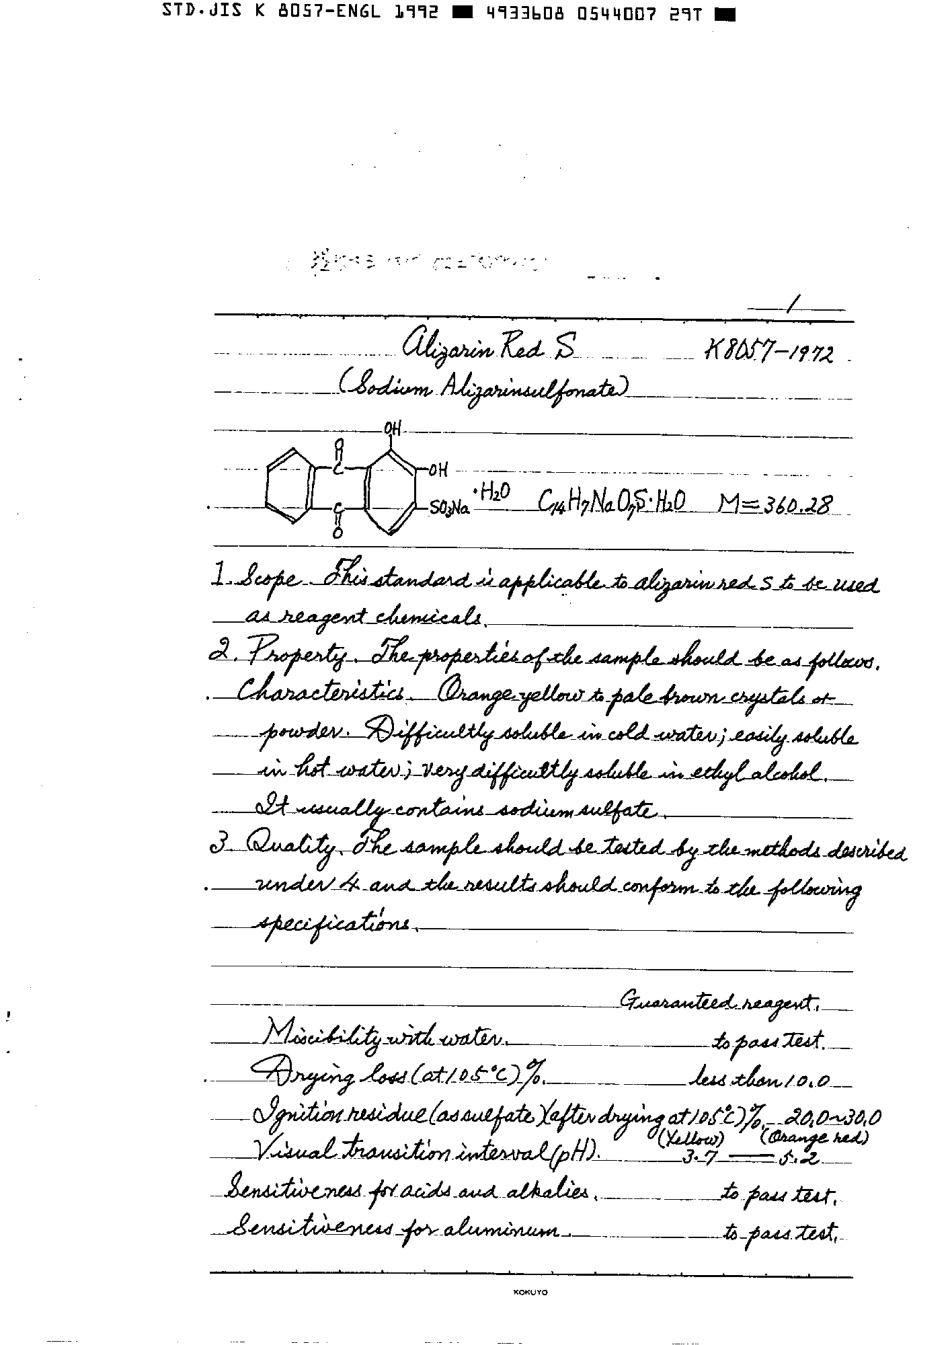 STD.JIS K 8057-ENGL 1992 ■ 4933608 0544007 29T ■
1
Alizarin Red S K8057-1972
(Sodium Alizarinsulfonate)
OH
O
C
OH
C
SO₃Na
·H₂O C₁₄H₇NaO₇S·H₂O M=360.28
O
1. Scope. This standard is applicable to alizarin red S to be used
as reagent chemicals.
2. Property. The properties of the sample should be as follows.
Characteristics. Orange yellow to pale brown crystals or
powder. Difficultly soluble in cold water; easily soluble
in hot water; very difficultly soluble in ethyl alcohol.
It usually contains sodium sulfate.
3. Quality. The sample should be tested by the methods described
under 4 and the results should conform to the following
specifications.
Guaranteed reagent.
Miscibility with water. to pass test.
Drying loss (at 105°C) %. less than 10.0
Ignition residue (as sulfate) (after drying at 105°C) %. 20.0~30.0
(Yellow) (Orange red)
Visual transition interval (pH). 3.7 — 5.2
Sensitiveness for acids and alkalies. to pass test.
Sensitiveness for aluminum. to pass test.
KOKUYO